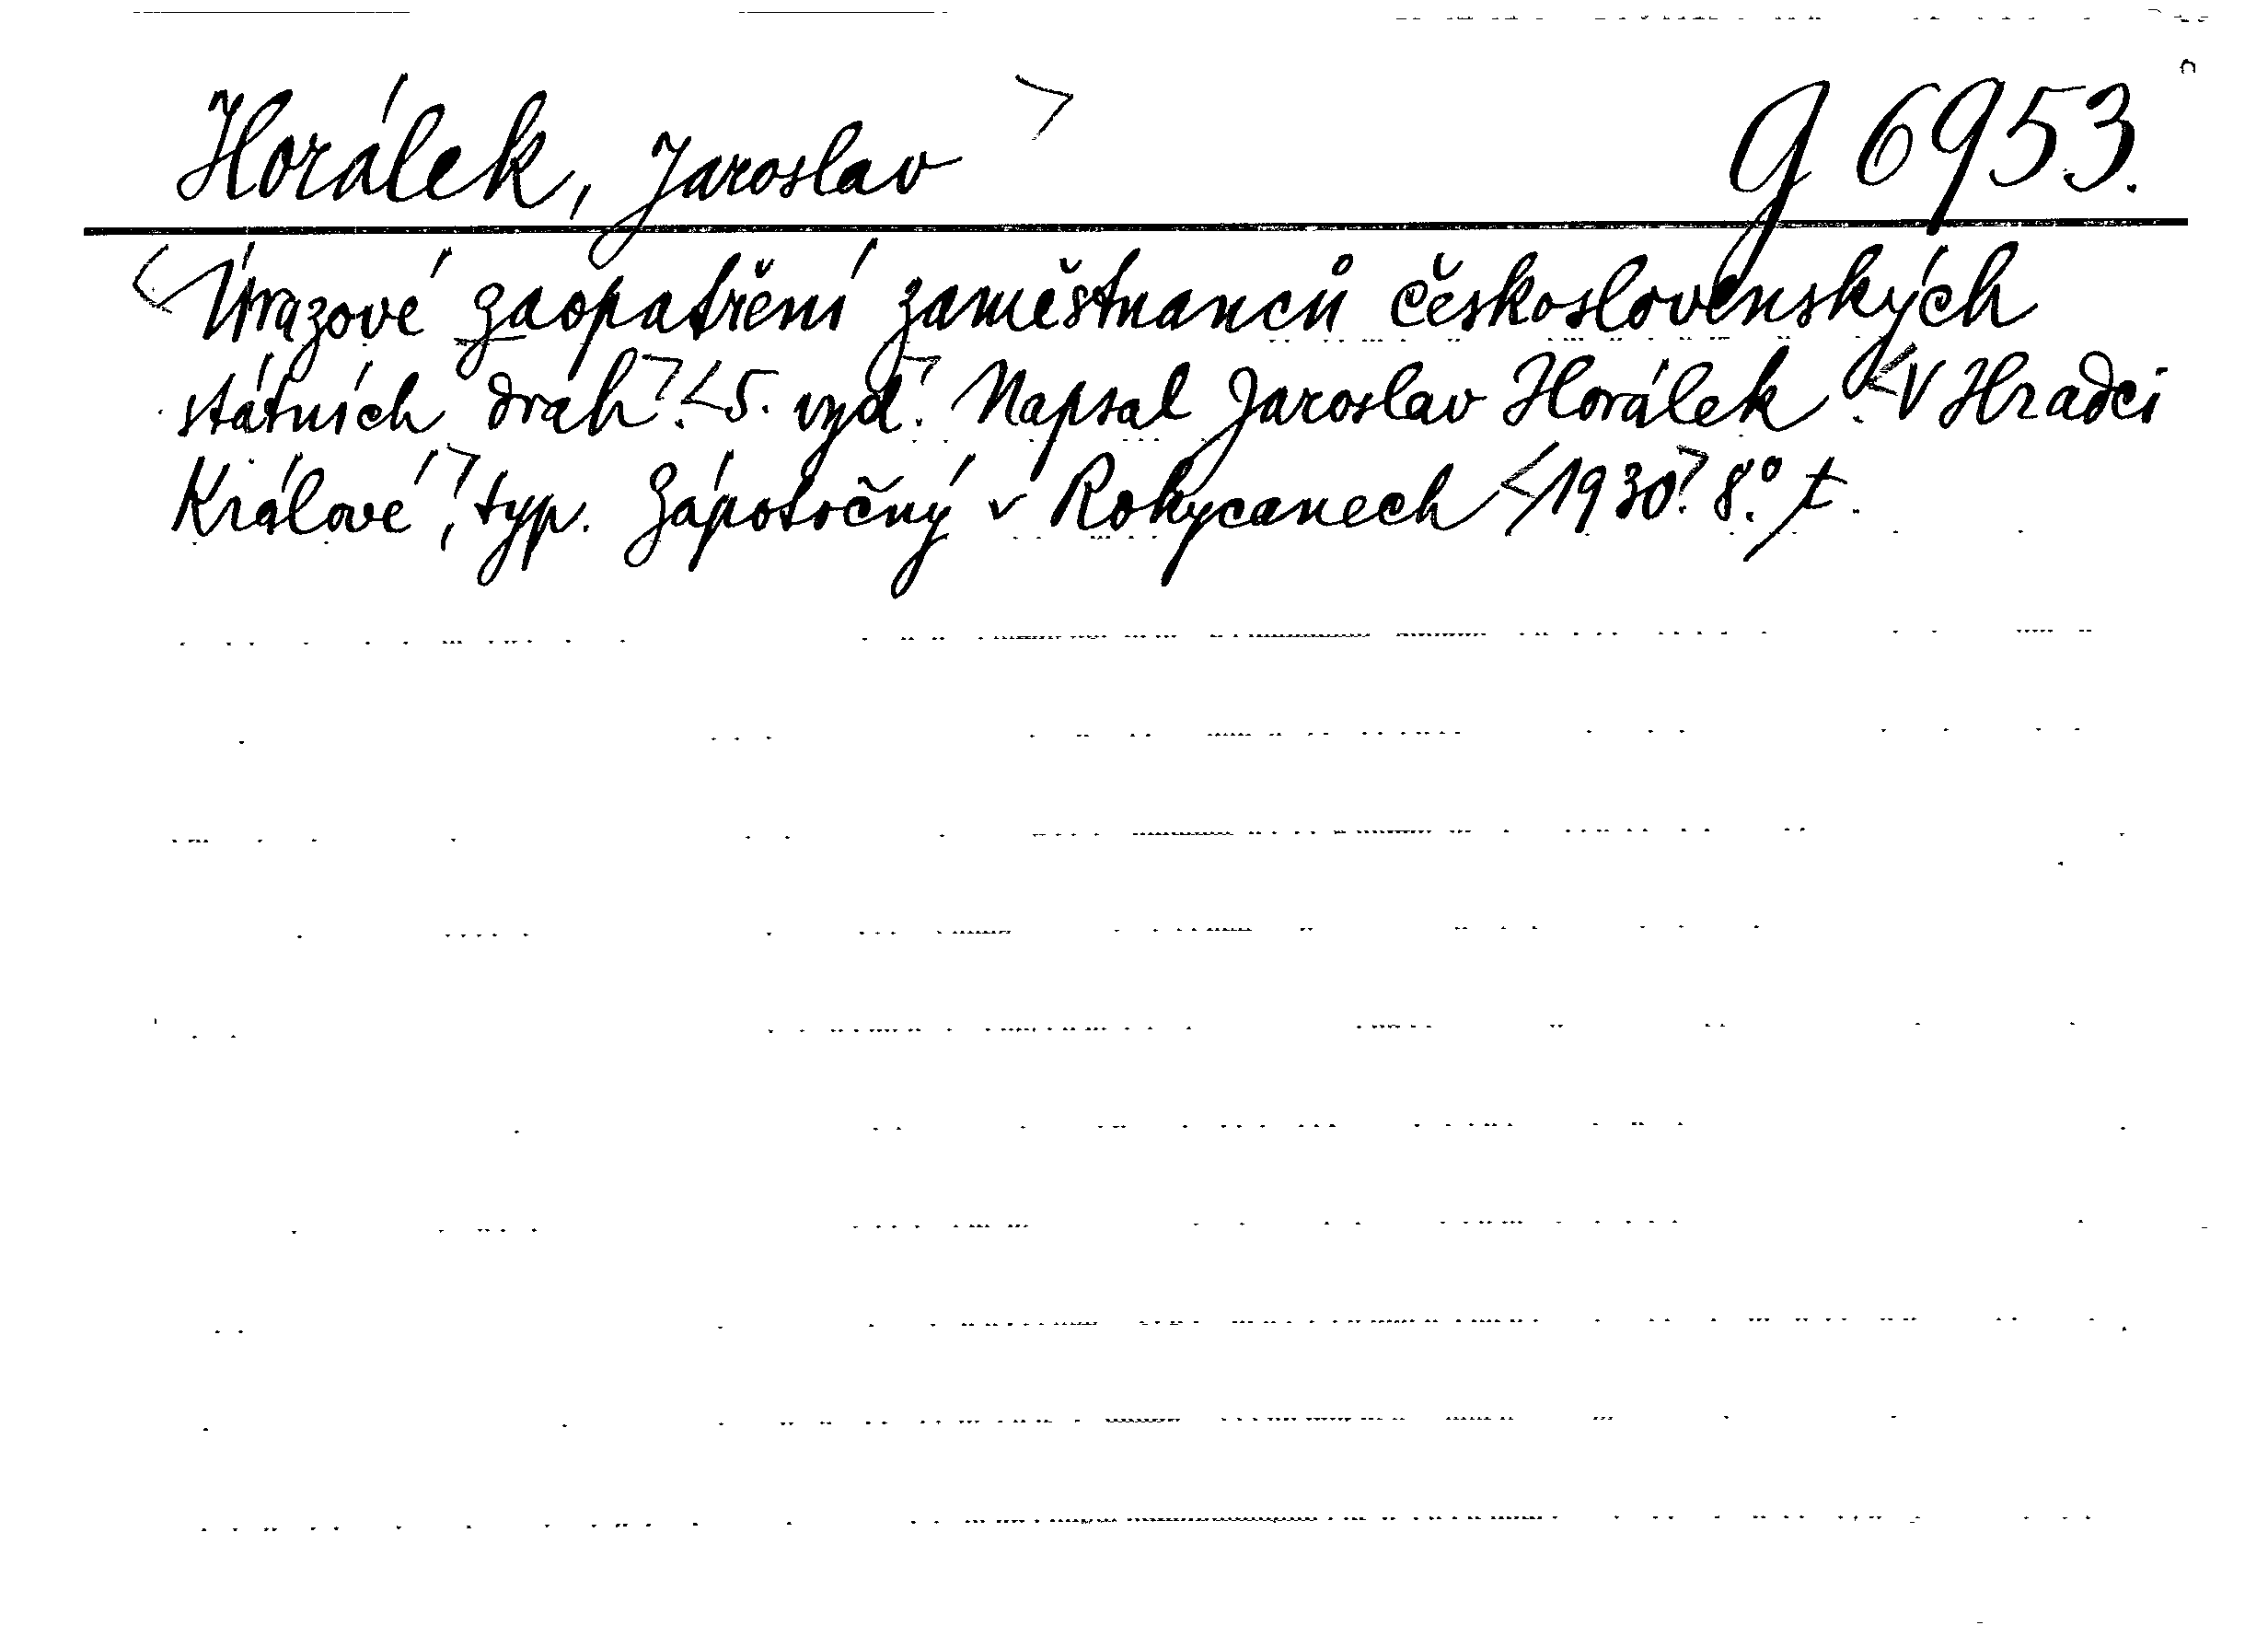 Horálek, Jaroslav > g 6953.
<Úrazové zaopatření zaměstnanců československých
státních drah>. <5. vyd>. Napsal Jaroslav Horálek. <V Hradci
Králové>, typ. Zápotočný v Rokycanech <1930>. 8° t.